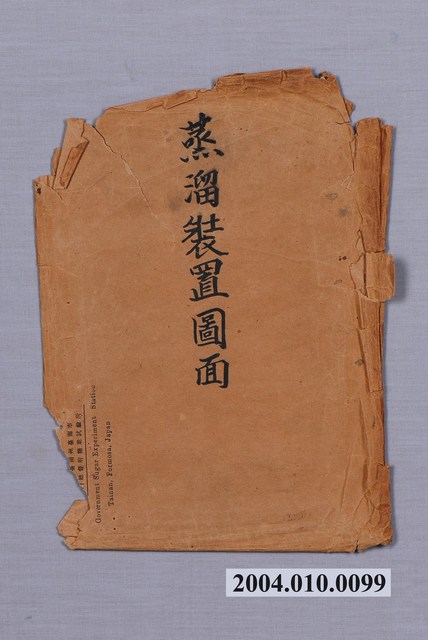 蒸溜裝置圖面
Government Sugar Experiment Station
Tainan, Formosa, Japan
2004.010.0099